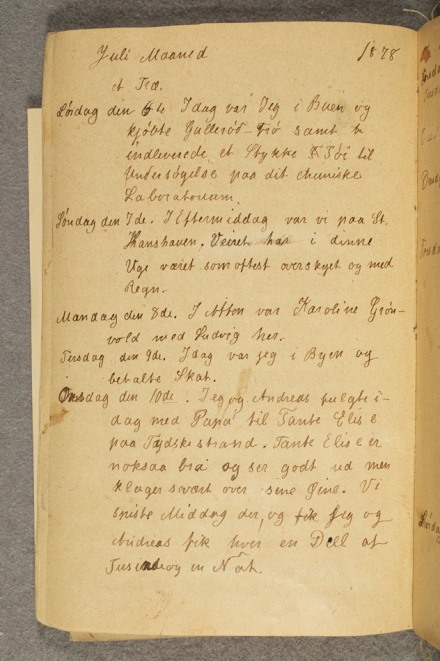 Juli Maaned 1878
et Træ.
Lørdag den 6te. Idag var Jeg i Buen og
kjøbte Gullerød-Frø samt
indleverede et Stykke Tøi til
Undersøgelse paa dit chemiske
Laboratorium.
Søndag den 7de. I Eftermiddag var vi paa St.
Hanshaven. Veiret har i dinne
Uge været som oftest overskyet og med
Regn.
Mandag den 8de. I Aften var Karoline Grøn-
vold med Ludvig her.
Tirsdag den 9de. Idag var jeg i Byen og
betalte Skat.
Onsdag den 10de. Jeg og Andreas fulgte i-
dag med Papa til Tante Elise
paa Tydskestrand. Tante Elise er
noksaa bra og ser godt ud men
klager svært over sine Øine. Vi
spiste Middag der, og fik Jeg og
Andreas fik hver en Deel af
Tusind og en Nat.